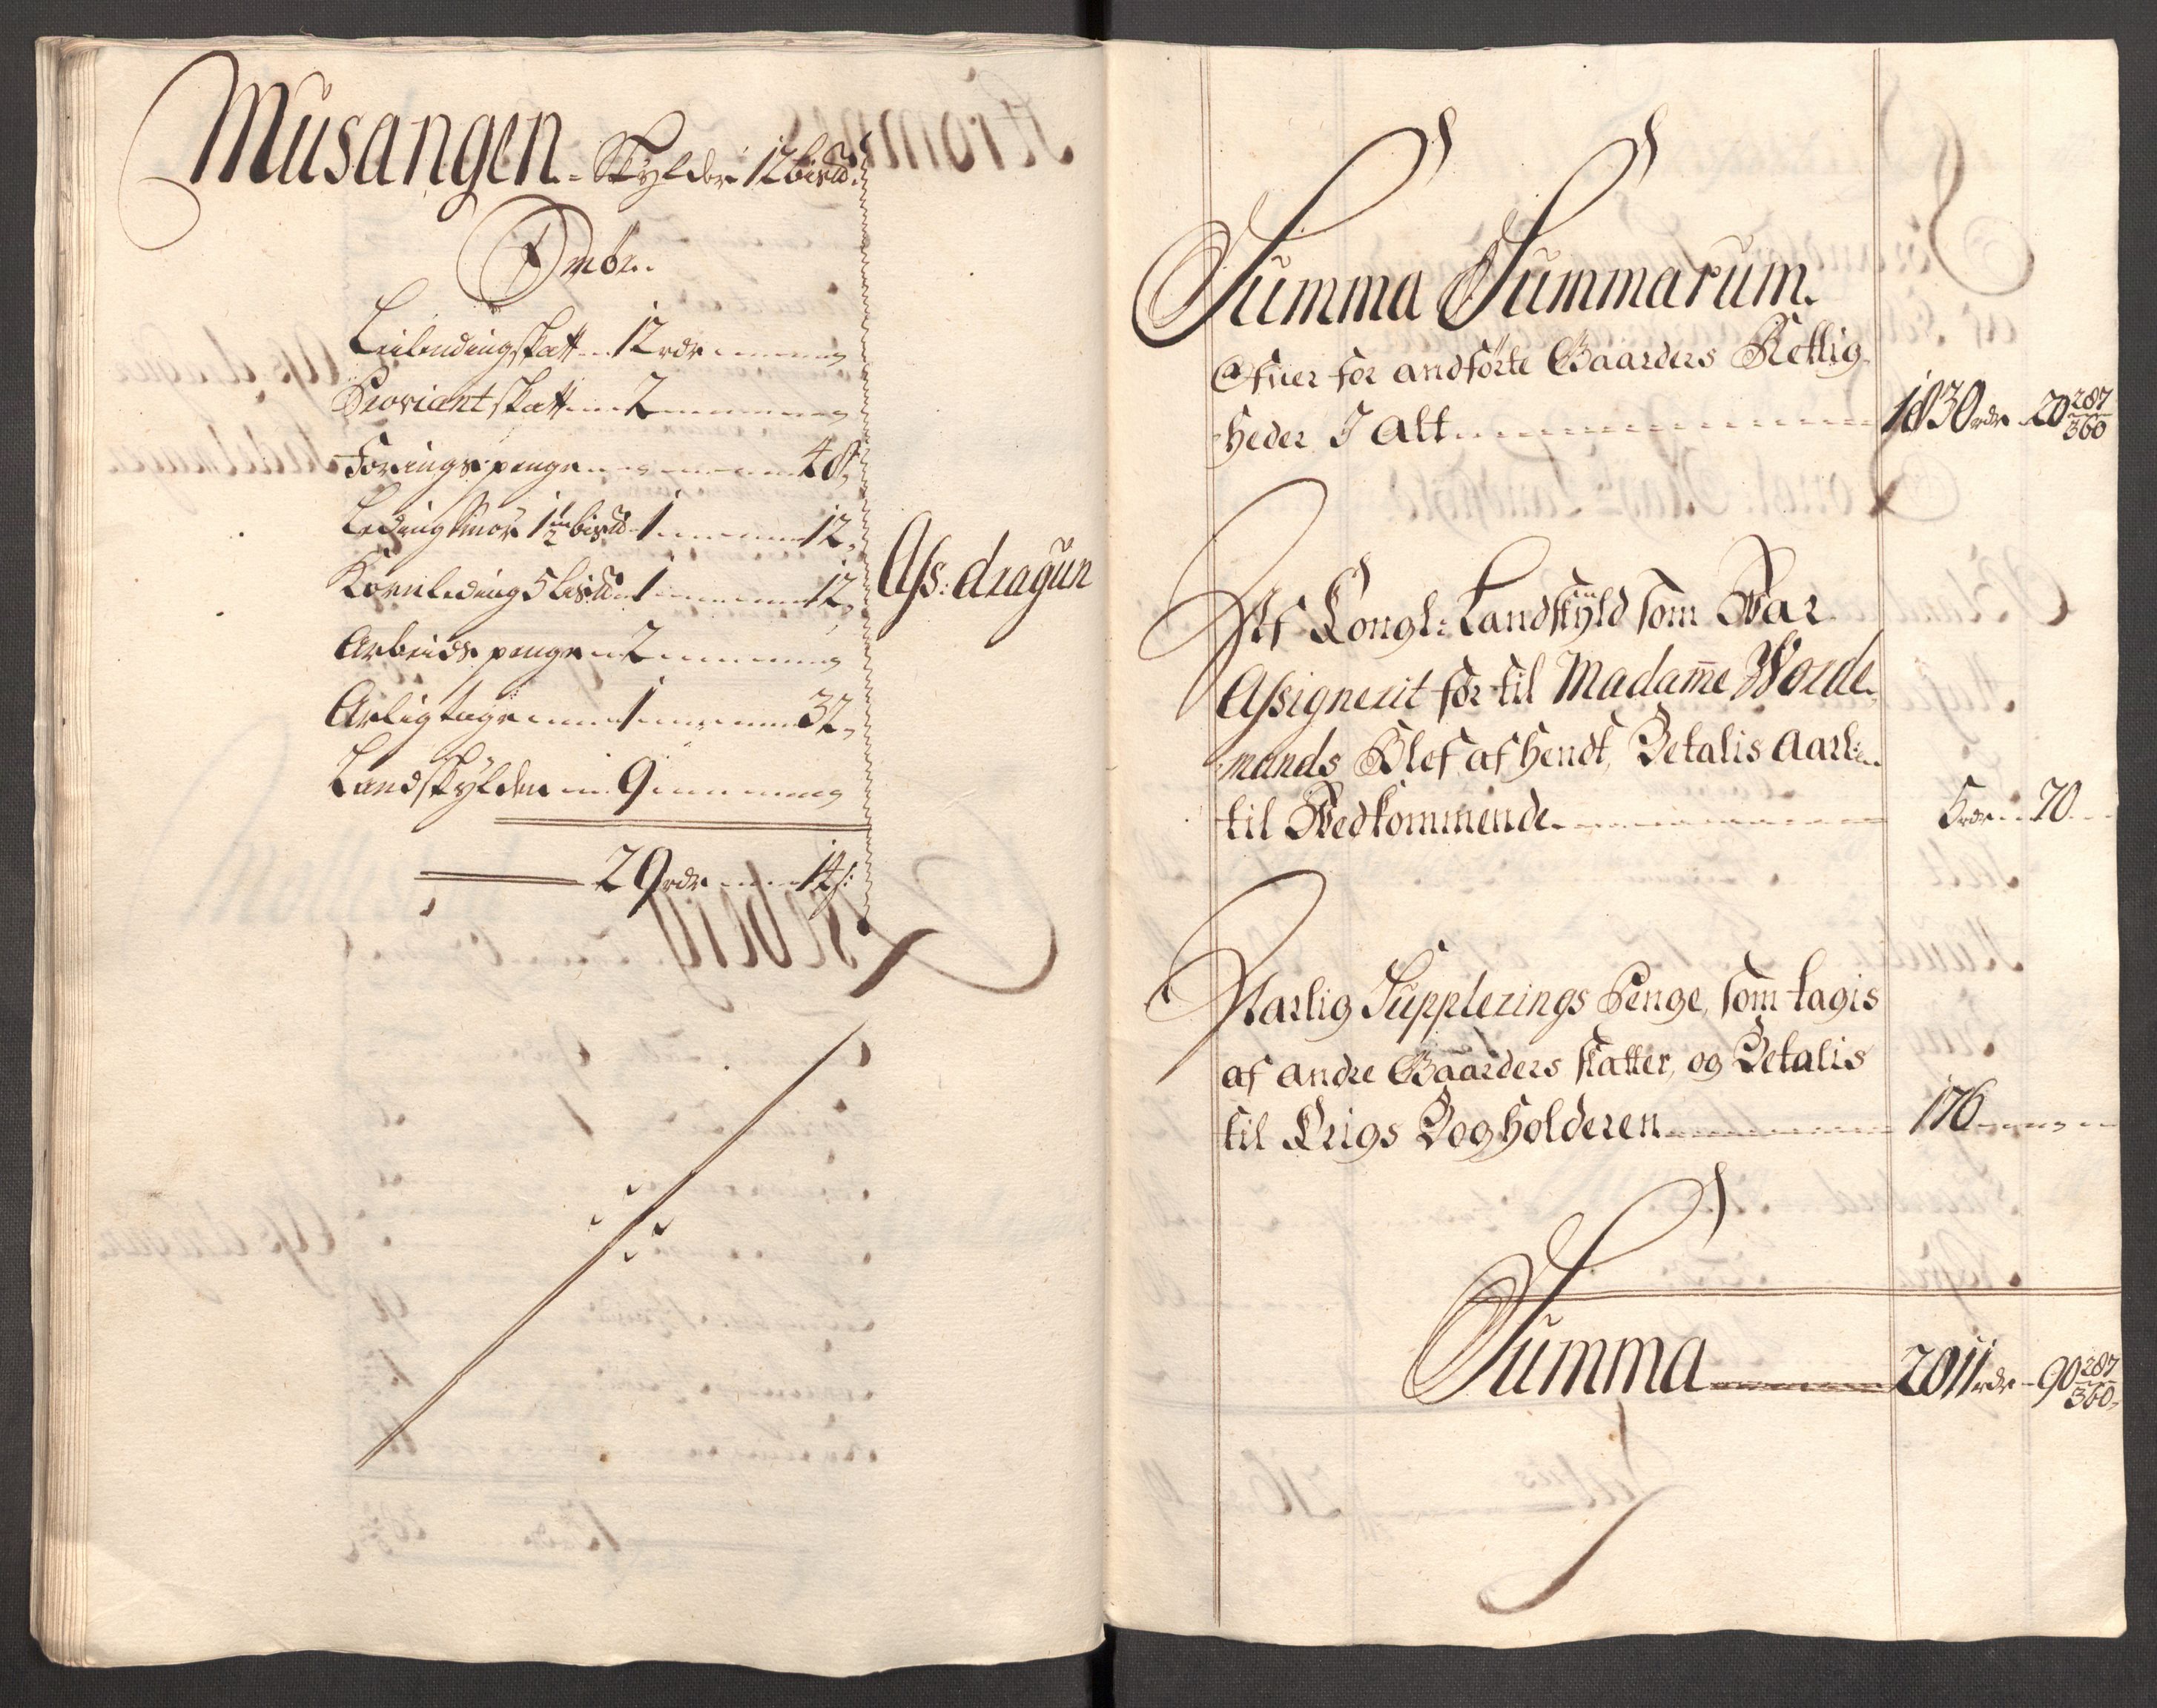 Musangen. Skylder 12 bis℔.
Leilendingskatt 12 rdr
Proviantskatt 2
Foringspenge 48
Ledingsmør 1½ bis℔ 1 12
Kornleding 5 bis℔ 1 12
Arbeids penge 2
Aarligtage 1 32
Landskylden 9
29 rdr 14 s:
Ass: dragun
Summa Summarum.
Ofuer for andførte Gaarders Rettig-
heder I Alt 1830 rdr 20 287/360
Af Kongl: Landskÿld som War
Assignerit før til Madame Worde-
mands Blef af hendt, Betalis aarl:
til Wedkommende 5 rdr 70
Aarlig Supplerings Penge, som tagis
af andre Gaarders skatter, og Betalis
til Krigs Bogholderen 176
Summa 2011 rdr 90 287/360